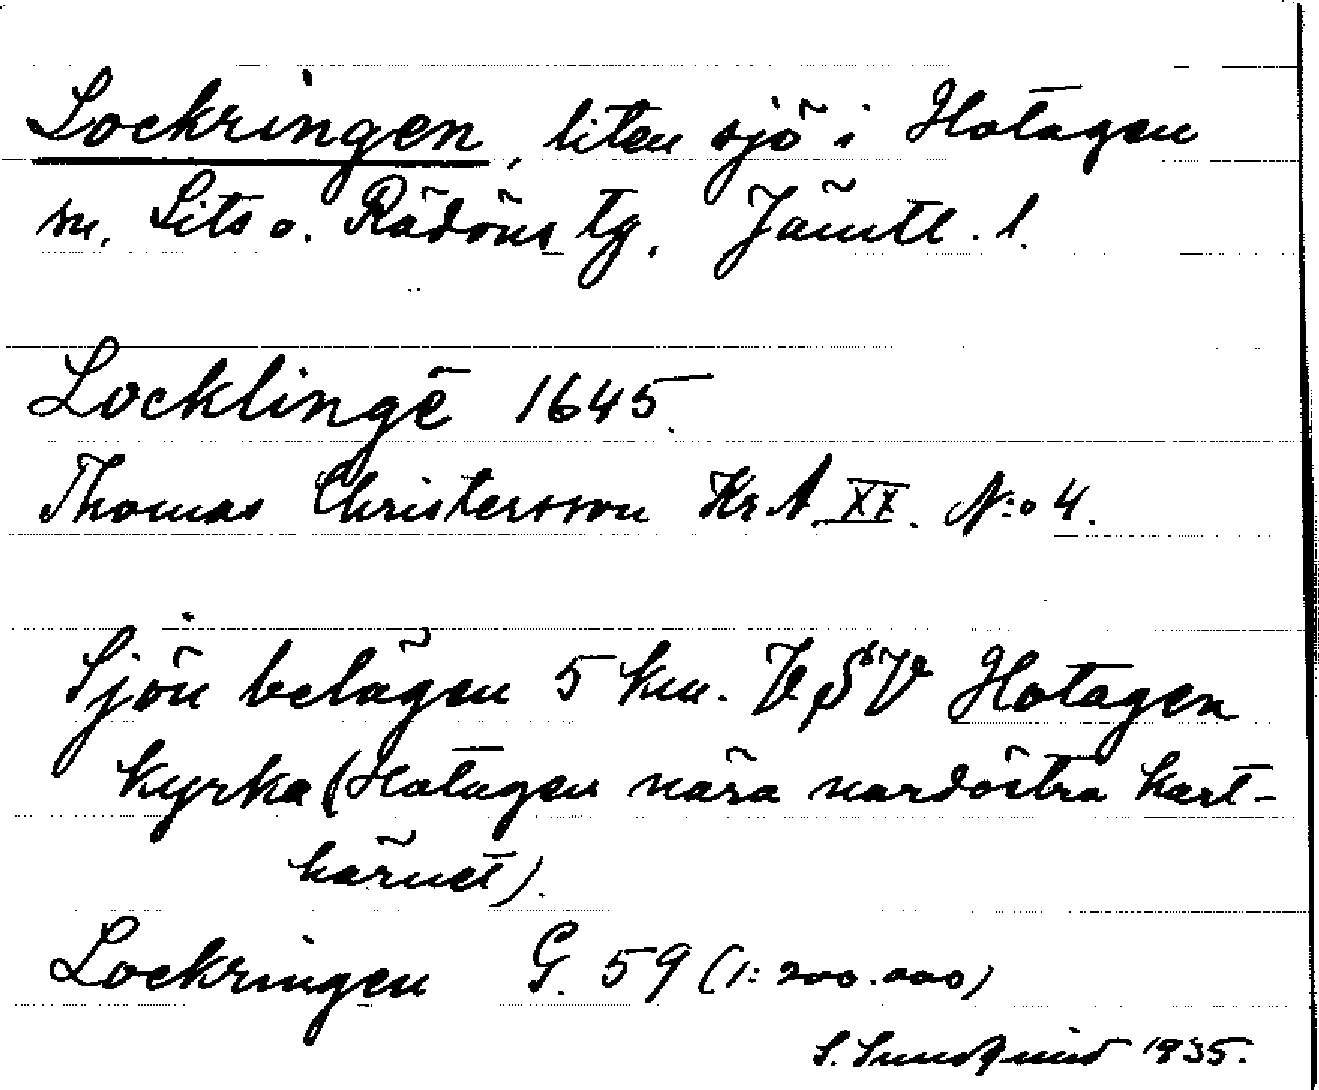 Lockringen, liten sjö i Hotagen
sn. Lits o. Rödöns tg. Jämtl. l.
Locklingē 1645.
Thomas Christersson Kr A XX. N:o 4.
Sjön belägen 5 km. V S V Hotagen
kyrka (Hotagen nära nordöstra kart-
hörnet).
Lockringen G. 59 (1: 200.000)
S. Sundqvist 1935.